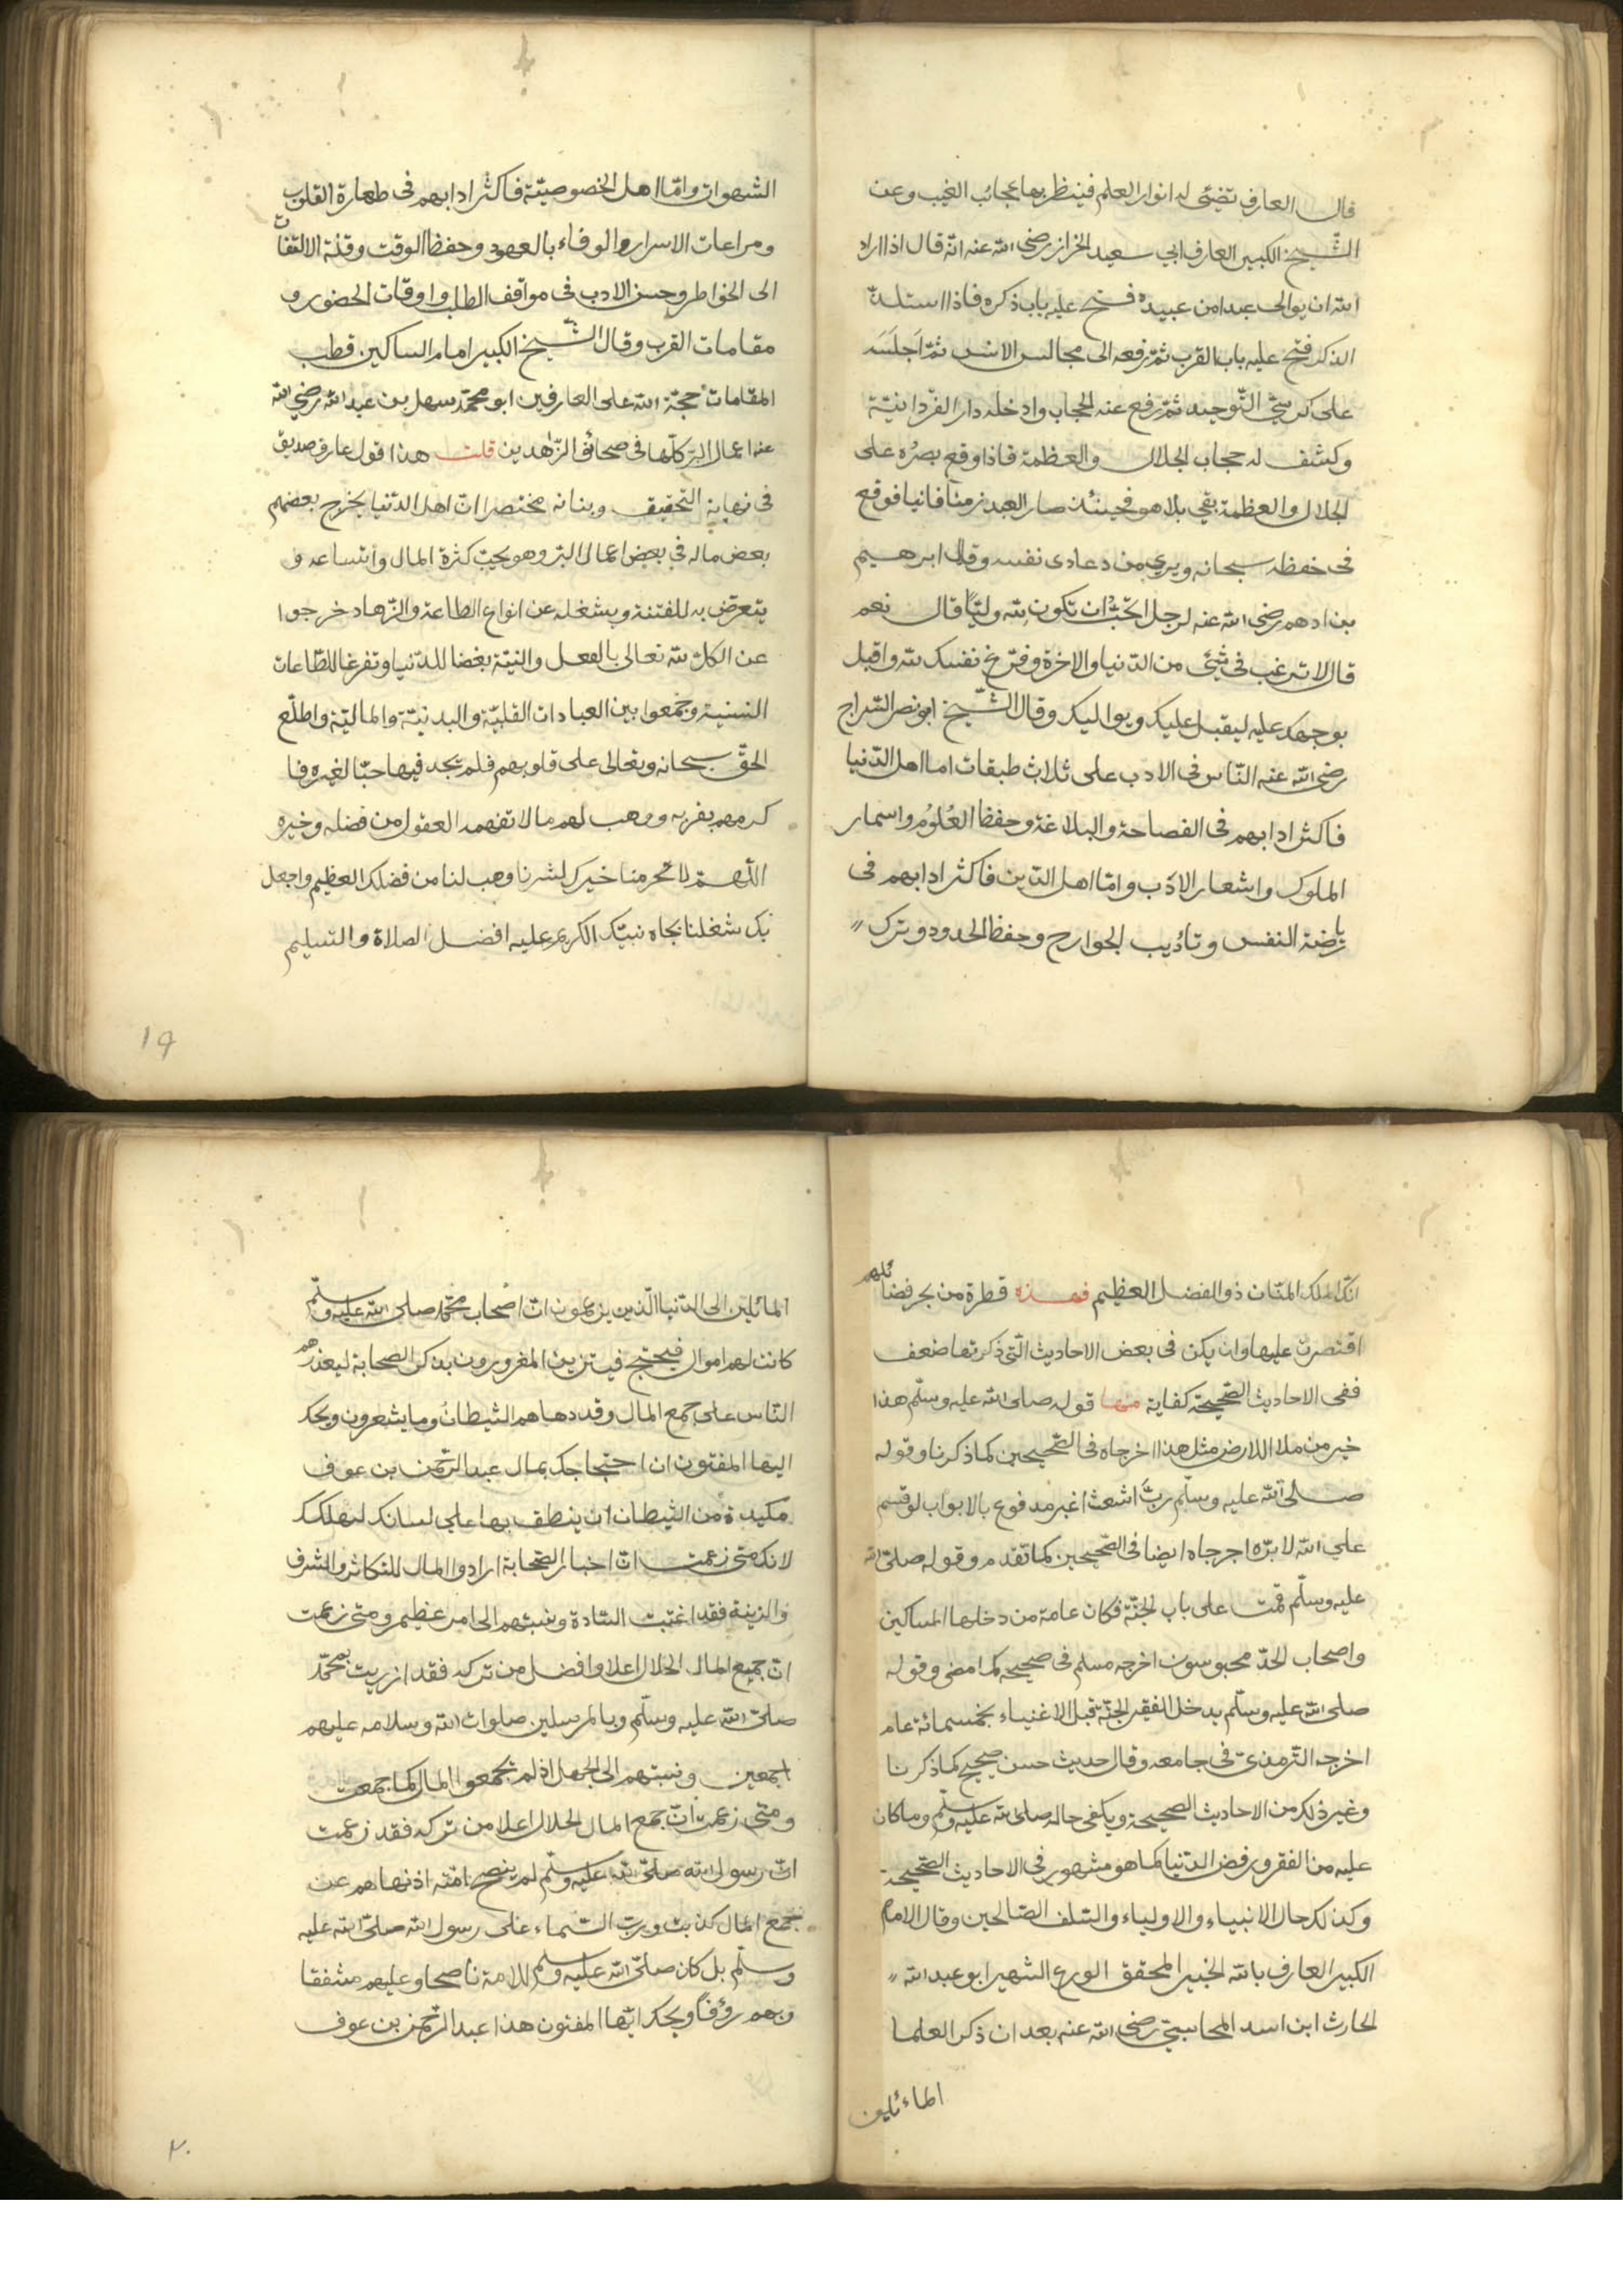 قال العارف تضئ له انوار العلم فينظر بها عجائب الغيب وعن
الشيخ الكبير العارف ابي سعيد الخراز رضي الله عنه انه قال اذا اراد
الله ان يوالى عبدا من عبيده فتح عليه باب ذكره فاذا استلذ
الذكر فتح عليه باب القرب ثم رفعه الى مجالس الانس ثم اجلسه
على كرسي التوحيد ثم رفع عنه الحجاب وادخله دار الفردانية
وكشف له حجاب الجلال والعظمة فاذا وقع بصره على
الجلال والعظمة بقي بلا هو فحينئذ صار العبد زمنا فانيا فوقع
في حفظه سبحانه وبري من دعاوى نفسه وقال ابرهيم
بن ادهم رضي الله عنه لرجل اتحب ان تكون لله وليا قال نعم
قال لا ترغب في شئ من الدنيا والاخرة وفرغ نفسك لله واقبل
بوجهك عليه ليقبل عليك ويواليك وقال الشيخ ابو نصر السراج
رضي الله عنه الناس في الادب على ثلاث طبقات اما اهل الدنيا
فاكثر ادابهم في الفصاحة والبلاغة وحفظ العلوم واسمار
الملوك واشعار الادب واما اهل الدين فاكثر ادابهم في
رياضة النفس وتأديب الجوارح وحفظ الحدود وترك
الشهوات واما اهل الخصوصية فاكثر ادابهم في طهارة القلوب
ومراعات الاسرار والوفاء بالعهود وحفظ الوقت وقلة الالتفات
الى الخواطر وحسن الادب في مواقف الطلب واوقات الحضور و
مقامات القرب وقال الشيخ الكبير امام السالكين قطب
المقامات حجة الله على العارفين ابو محمد سهل بن عبد الله رضي الله
عنه اعمال البر كلها في صحائف الزاهدين قلت هذا قول عارف صديق
في نهاية التحقيق وبيانه مختصرا ان اهل الدنيا يخرج بعضهم
بعض ماله في بعض اعمال البر وهو يحب كثرة المال واتساعه و
يتعرض به للفتنة ويشغله عن انواع الطاعة والزهاد خرجوا
عن الكل لله تعالى بالفعل والنية بغضا للدنيا وتفرغا للطاعات
السنية وجمعوا بين العبادات القلبية والبدنية والمالية واطلع
الحق سبحانه وتعالى على قلوبهم فلم يجد فيها حبا لغيره فا
كرمهم بقربه ووهب لهم ما لا تفهمه العقول من فضله وخيره
اللهم لا تحرمنا خيرك لشرنا وهب لنا من فضلك العظيم واجعل
بك شغلنا بجاه نبيك الكريم عليه افضل الصلاة والتسليم
19
انك الملك المنان ذو الفضل العظيم فهذه قطرة من بحر فضائلهم
اقتصرت عليها وان يكن في بعض الاحاديث التي ذكرتها ضعف
ففى الاحاديث الصحيحة كفاية منها قوله صلى الله عليه وسلم هذا
خير من ملا الارض مثل هذا اخرجاه في الصحيحين كما ذكرنا وقوله
صلى الله عليه وسلم رب اشعث اغبر مدفوع بالابواب لو قسم
على الله لابره اجرجاه ايضا في الصحيحين كما تقدم وقوله صلى الله
عليه وسلم قمت على باب الجنة فكان عامة من دخلها المساكين
واصحاب الجد محبوسون اخرجه مسلم في صحيحه كما مضى وقوله
صلى الله عليه وسلم يدخل الفقير الجنة قبل الاغنياء بخمسمائة عام
اخرجه الترمذي في جامعه وقال حديث حسن صحيح كما ذكرنا
وغير ذلك من الاحاديث الصحيحة ويكفى حاله صلى الله عليه وسلم وما كان
عليه من الفقر ورفض الدنيا كما هو مشهور في الاحاديث الصحيحة
وكذلك حال الانبياء والاولياء والسلف الصالحين وقال الامام
الكبير العارف بالله الخبير المحقق الورع الشهير ابو عبد الله
الحارث ابن اسد المحاسبي رضي الله عنه بعد ان ذكر العلما
المائلين
المائلين الى الدنيا الذين يزعمون ان اصحاب محمد صلى الله عليه وسلم
كانت لهم اموال فيحتج فيتزين المغرورون بذكر الصحابة ليعذرهم
الناس على جمع المال وقد دهاهم الشيطان وما يشعرون ويحك
ايها المفتون ان احتجاجك بمال عبد الرحمن بن عوف
مكيدة من الشيطان ان ينطق بها على لسانك لتهلكك
لانك متى زعمت ان اخيار الصحابة ارادوا المال للتكاثر والشرف
والزينة فقد اغتبت السادة ونسبتهم الى امر عظيم ومتى زعمت
ان جميع المال الحلال اعلا وافضل من تركه فقد ازريت بمحمد
صلى الله عليه وسلم وبالمرسلين صلوات الله وسلامه عليهم
اجمعين ونسبتهم الى الجهل اذ لم يجمعوا المال كما جمعت
ومتى زعمت ان جمع المال الحلال اعلا من تركه فقد زعمت
ان رسول الله صلى الله عليه وسلم لم ينصح امته اذ نهاهم عن
جمع المال كذبت ورب السماء على رسول الله صلى الله عليه
وسلم بل كان صلى الله عليه وسلم للامة ناصحا وعليهم مشفقا
وبهم رؤفا ويحك ايها المفتون هذا عبد الرحمن بن عوف
٢٠